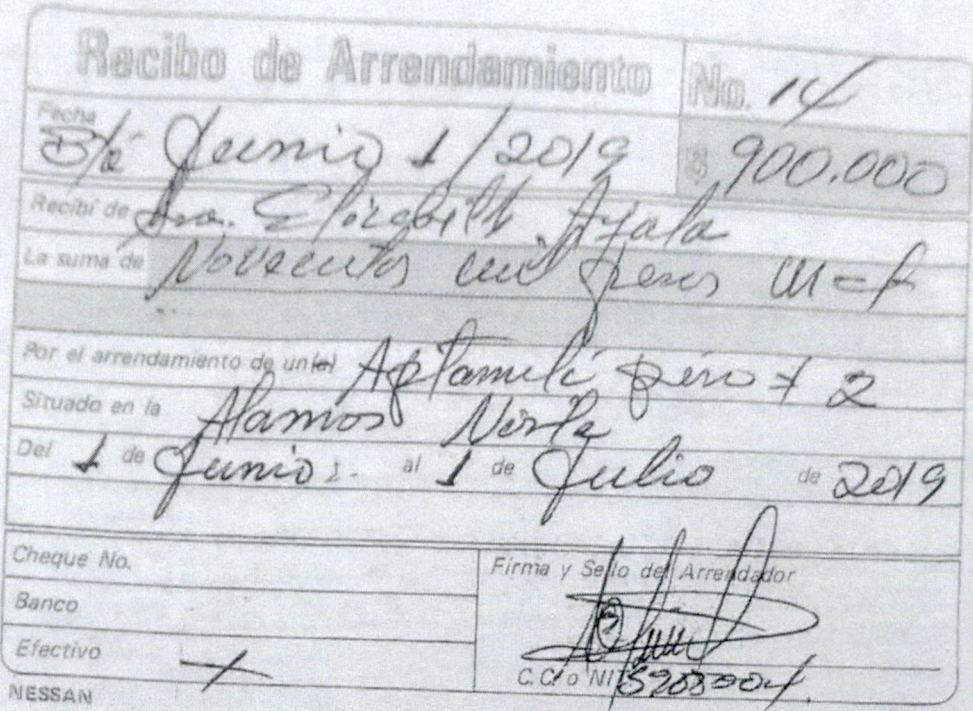 Recibo de Arrendamiento No. 14
Fecha
B/á Junio 1/2019 $ 900.000
Recibí de Sra. Elizabeth Ayala
La suma de Novecientos mil pesos
Por el arrendamiento de un(a) piso # 2
Situado en la Alamos Norte
Del 1 de Junio al 1 de Julio de 2019
Cheque No.
Firma y Sello del Arrendador
Banco
Efectivo X
C.C. o NIT
NESSAN